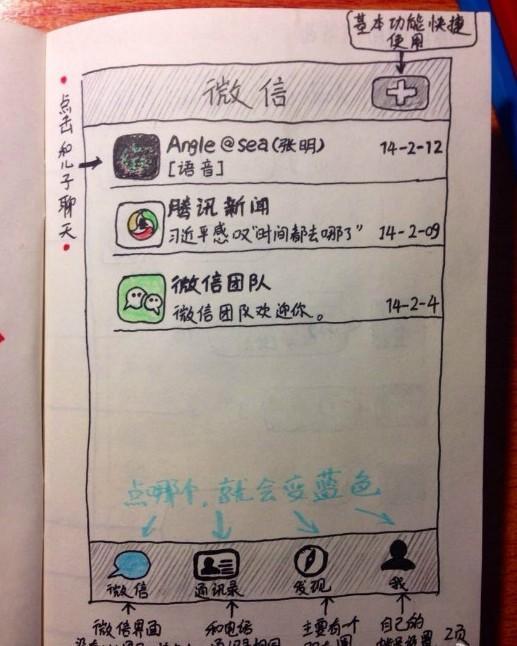 基本功能快捷
使用
微信
点击和儿子聊天
Angle@sea(张明)
14-2-12
[语音]
腾讯新闻
习近平感叹"时间都去哪了"
14-2-09
微信团队
微信团队欢迎你。
14-2-4
点哪个,就会变蓝色
微信
通讯录
发现
我
微信界面
和电话
主要有个
自己的
2页